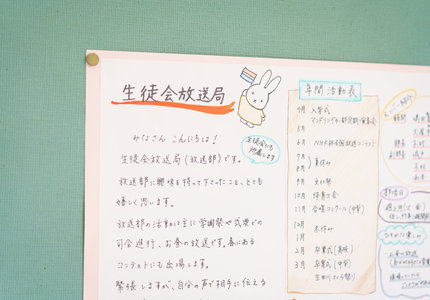 生徒会放送局
みなさん こんにちは！
生徒会にも
所属します
生徒会放送局（放送部）です。
放送部に興味を持って下さったこと、とても
嬉しく思います。
放送部の活動は主に学園祭や式典での
司会進行、お昼の放送です。春にある
コンテストにも出場します。
緊張しますが、自分の声で相手に伝える
年間活動表
4月 入学式
5月
6月 NHK杯全国放送コンテスト
7月 夏休み
8月
9月 文化祭
10月 体育大会
11月 合唱コンクール（中等）
12月 冬休み
1月
2月 卒業式（高校）
3月 卒業式（中等）
顧問
部長
副部長
お昼の放送